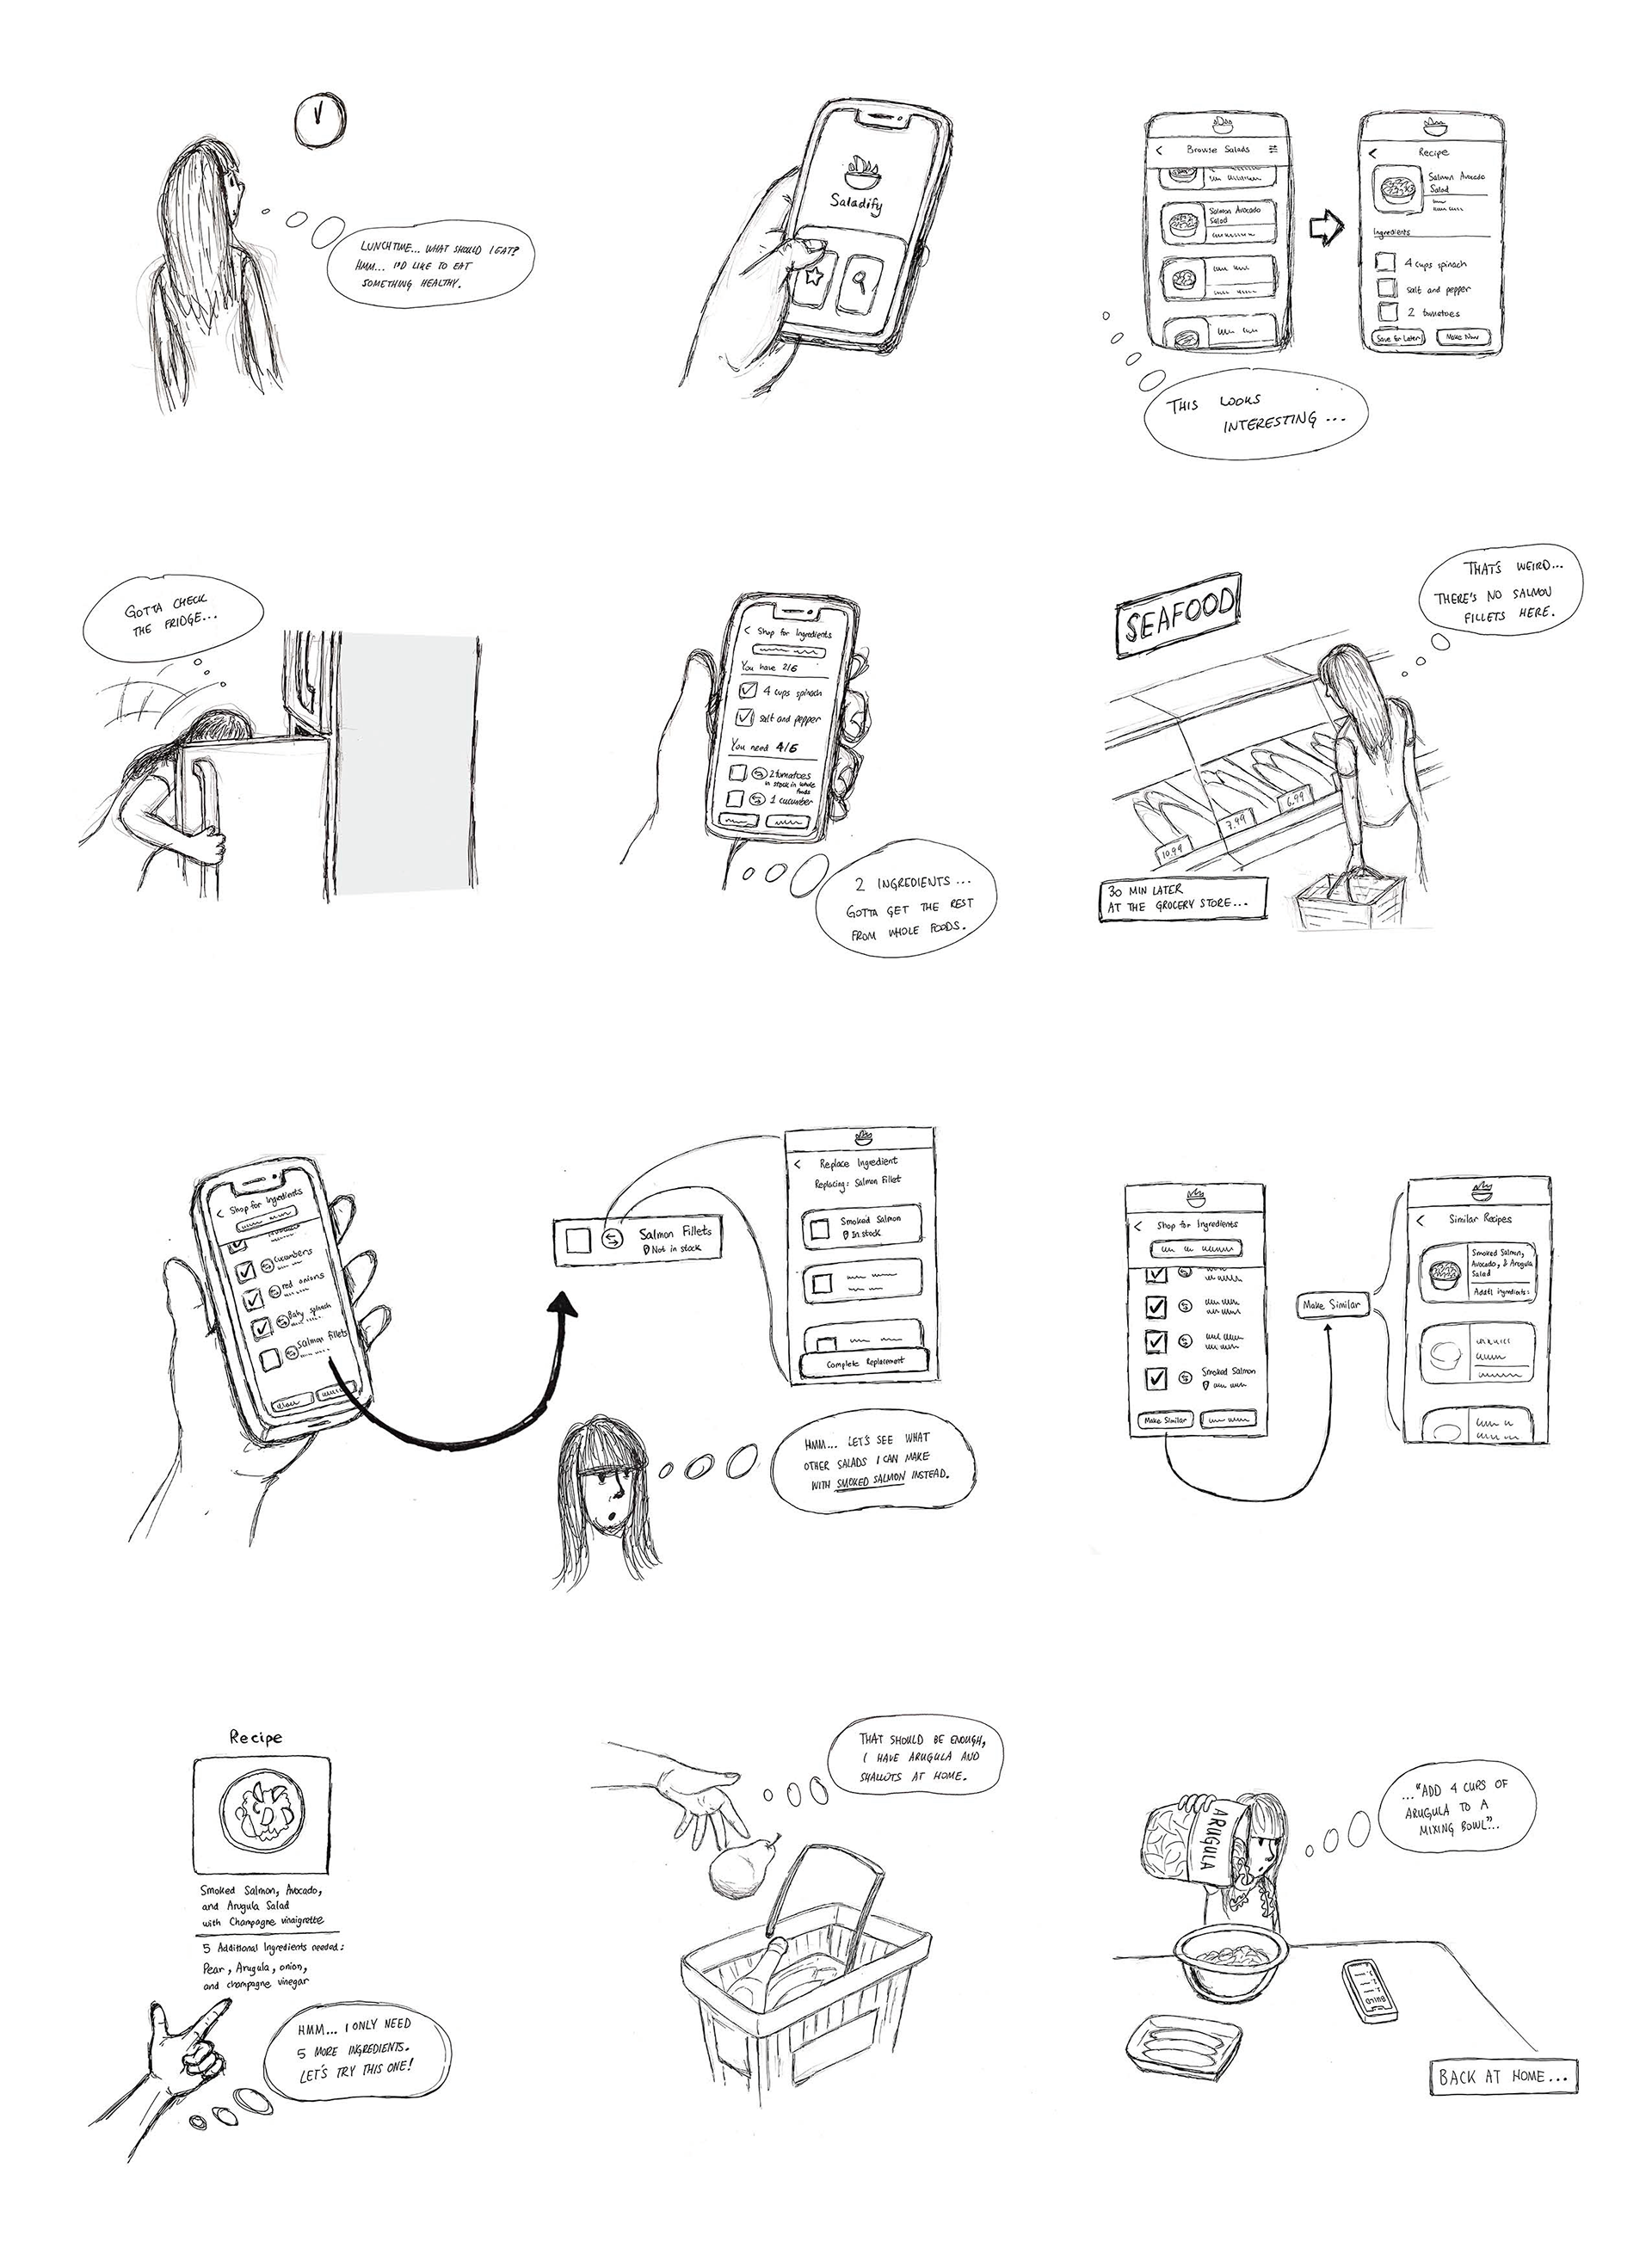 LUNCHTIME... WHAT SHOULD I EAT?
HMM... I'D LIKE TO EAT
SOMETHING HEALTHY.
Saladify
Browse Salads
Salmon Avocado
Salad
Recipe
Salmon Avocado
Salad
Ingredients
4 cups spinach
salt and pepper
2 tomatoes
Save for Later
Make Now
THIS LOOKS
INTERESTING...
GOTTA CHECK
THE FRIDGE...
< Shop for Ingredients
You have 2/6
4 cups spinach
salt and pepper
You need 4/6
2 tomatoes
in stock in whole
foods
1 cucumber
2 INGREDIENTS...
GOTTA GET THE REST
FROM WHOLE FOODS.
SEAFOOD
THAT'S WEIRD...
THERE'S NO SALMON
FILLETS HERE.
10.99
7.99
6.99
30 MIN LATER
AT THE GROCERY STORE...
< Shop for Ingredients
cucumbers
red onions
Baby spinach
Salmon fillets
Salmon Fillets
Not in stock
< Replace Ingredient
Replacing: Salmon Fillet
Smoked Salmon
In stock
Complete Replacement
HMM... LET'S SEE WHAT
OTHER SALADS I CAN MAKE
WITH SMOKED SALMON INSTEAD.
< Shop for Ingredients
Smoked Salmon
Make Similar
Make Similar
< Similar Recipes
Smoked Salmon,
Avocado, & Arugula
Salad
Addtl ingredients:
Recipe
Smoked Salmon, Avocado,
and Arugula Salad
with Champagne vinaigrette
5 Additional Ingredients needed:
Pear, Arugula, onion,
and champagne vinegar
HMM... I ONLY NEED
5 MORE INGREDIENTS.
LET'S TRY THIS ONE!
THAT SHOULD BE ENOUGH,
I HAVE ARUGULA AND
SHALLOTS AT HOME.
..."ADD 4 CUPS OF
ARUGULA TO A
MIXING BOWL"...
ARUGULA
BUILD
BACK AT HOME...